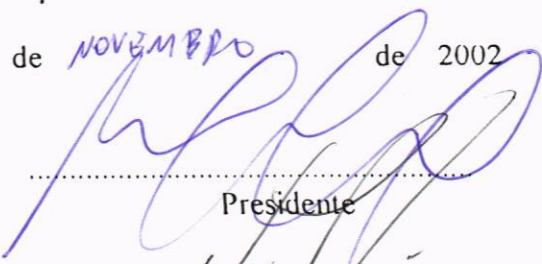 de NOVEMBRO de 2002
Presidente